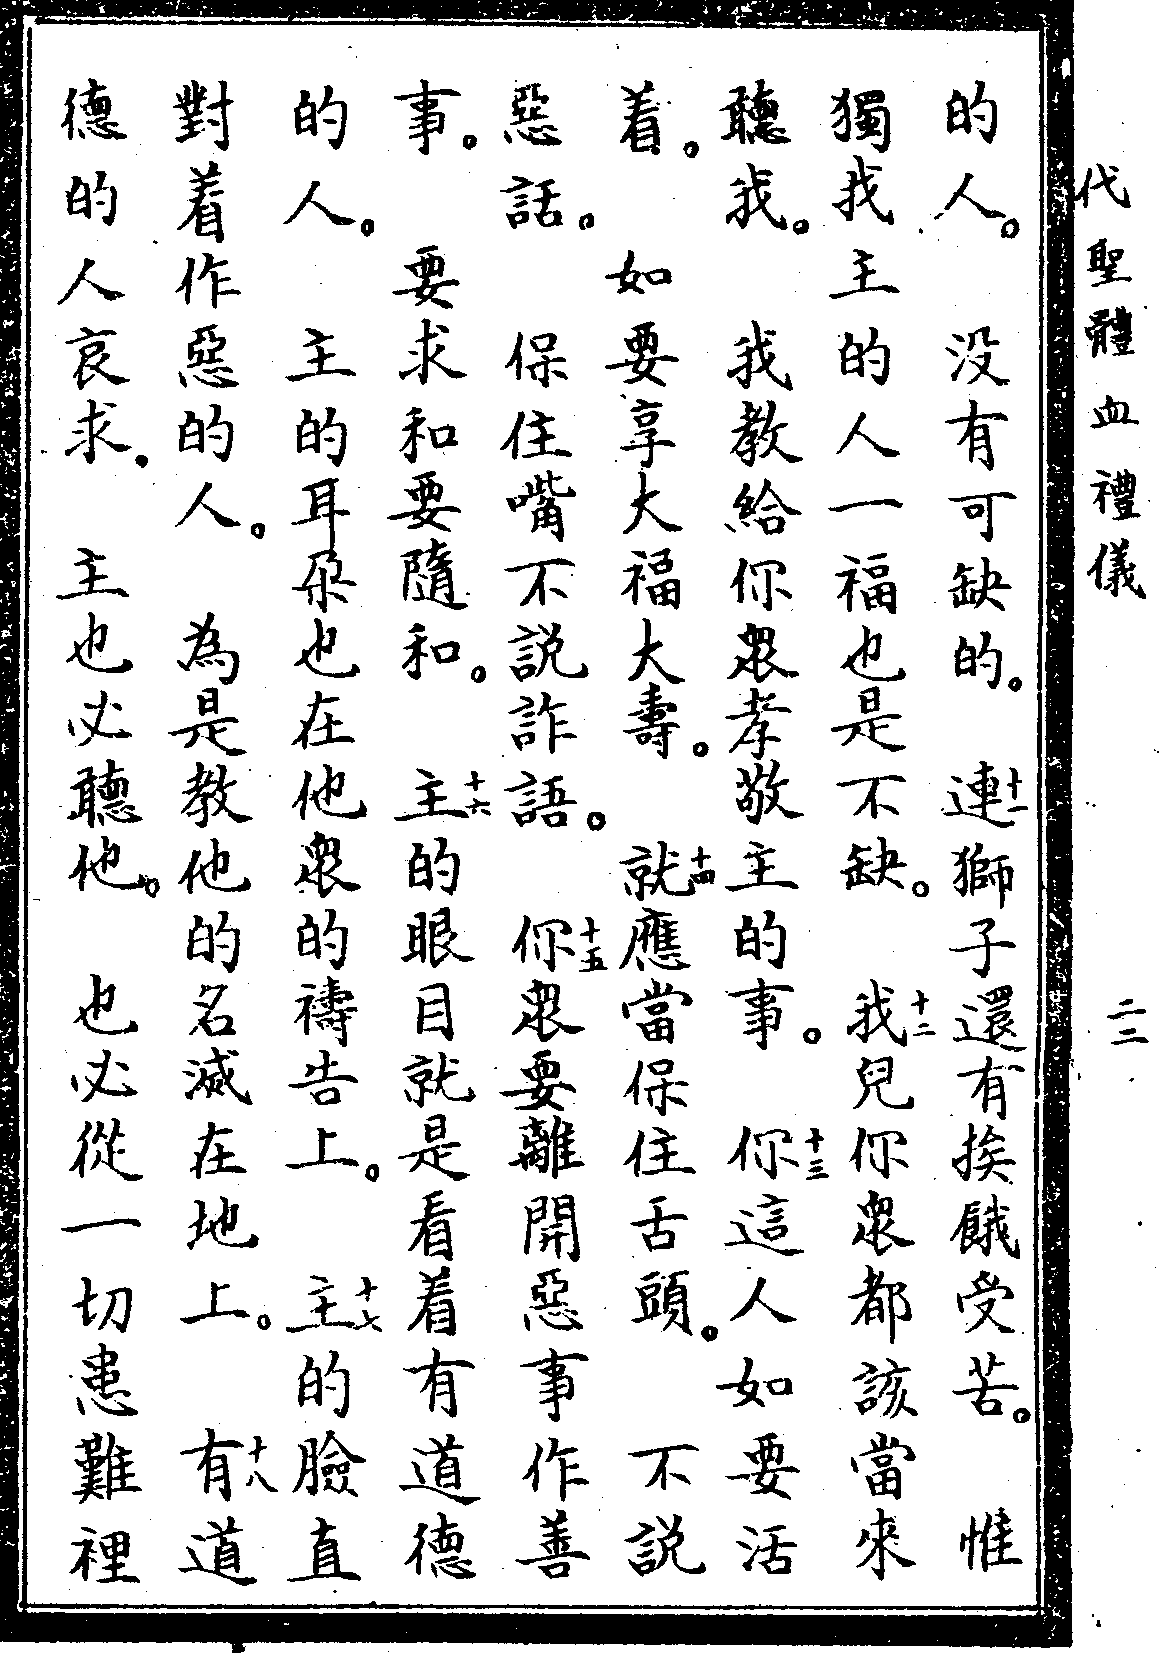 代聖體血禮儀 二二
的人。 没有可缺的。 十一連獅子還有挨餓受苦。 惟
獨我主的人一福也是不缺。 十二我兒你衆都該當來
聽我。 我教給你衆孝敬主的事。 十三你這人如要活
着。 如要享大福大壽。 十四就應當保住舌頭。 不説
惡話。 保住嘴不説詐語。 十五你衆要離開惡事作善
事。 要求和要隨和。 十六主的眼目就是看着有道德
的人。 主的耳朶也在他衆的禱告上。 十七主的臉直
對着作惡的人。 為是教他的名滅在地上。 十八有道
德的人哀求. 主也必聽他。 也必從一切患難裡